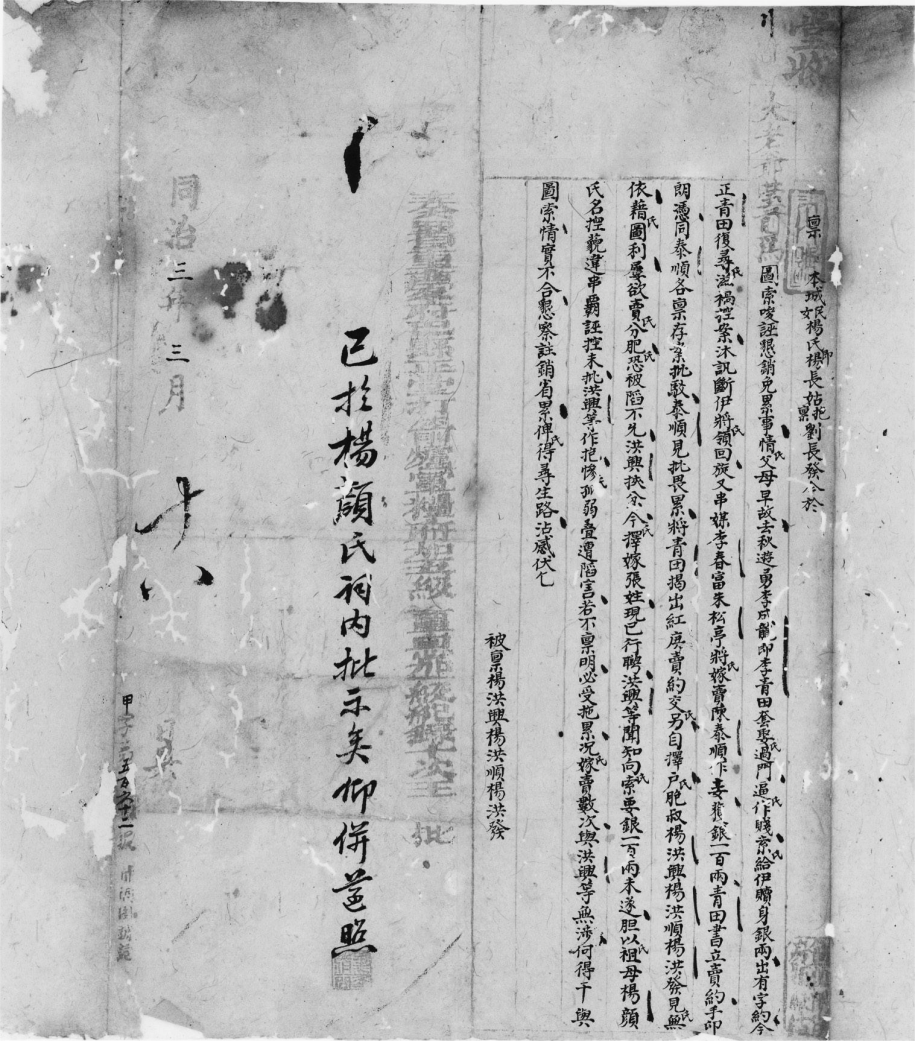 稟
本城民女楊氏楊長姑抱稟劉長發今於
圖索唆誣懇銷免累事情氏父母早故去秋遊勇李成龍即李青田套娶氏過門逼氏作賤索氏給伊贖身銀兩出有字約今
正青田復尋氏滋禍控案沐訊斷伊將氏領回旋又串媒李春富朱松亭將氏嫁賣陳泰順作妾銀一百兩青田書立賣約手印
朗憑同泰順各稟存案批駁泰順見批畏累將青田揭出紅庚賣約交氏另自擇戶氏胞叔楊洪興楊洪順楊洪發見氏無
依藉圖利屢欲賣氏分肥氏恐被陷不允洪興挾忿今氏擇嫁張姓現已行聘洪興等聞知向氏索要銀一百兩未遂胆以氏祖母楊顏
氏名控藐違串霸誣控未批洪興等作抱慘氏孤弱疊遭陷害若不稟明必受拖累況氏嫁賣數次與洪興等無涉何得干與
圖索情實不合懇察註銷省累俾氏得尋生路沾感伏乞
被稟楊洪興楊洪順楊洪發
批
已於楊顏氏詞內批示矣仰併遵照
同治三年三月
十八